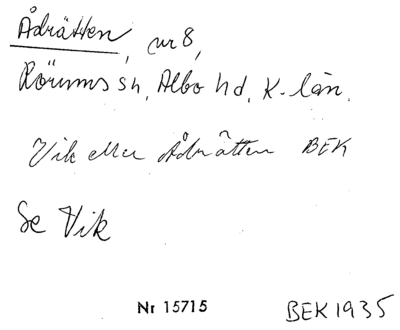 Ådrätten, nr 8,
Rörums sn, Albo hd, K-län.
Vik eller Ådrätten BEK
Se Vik
Nr 15715 BEK 1935